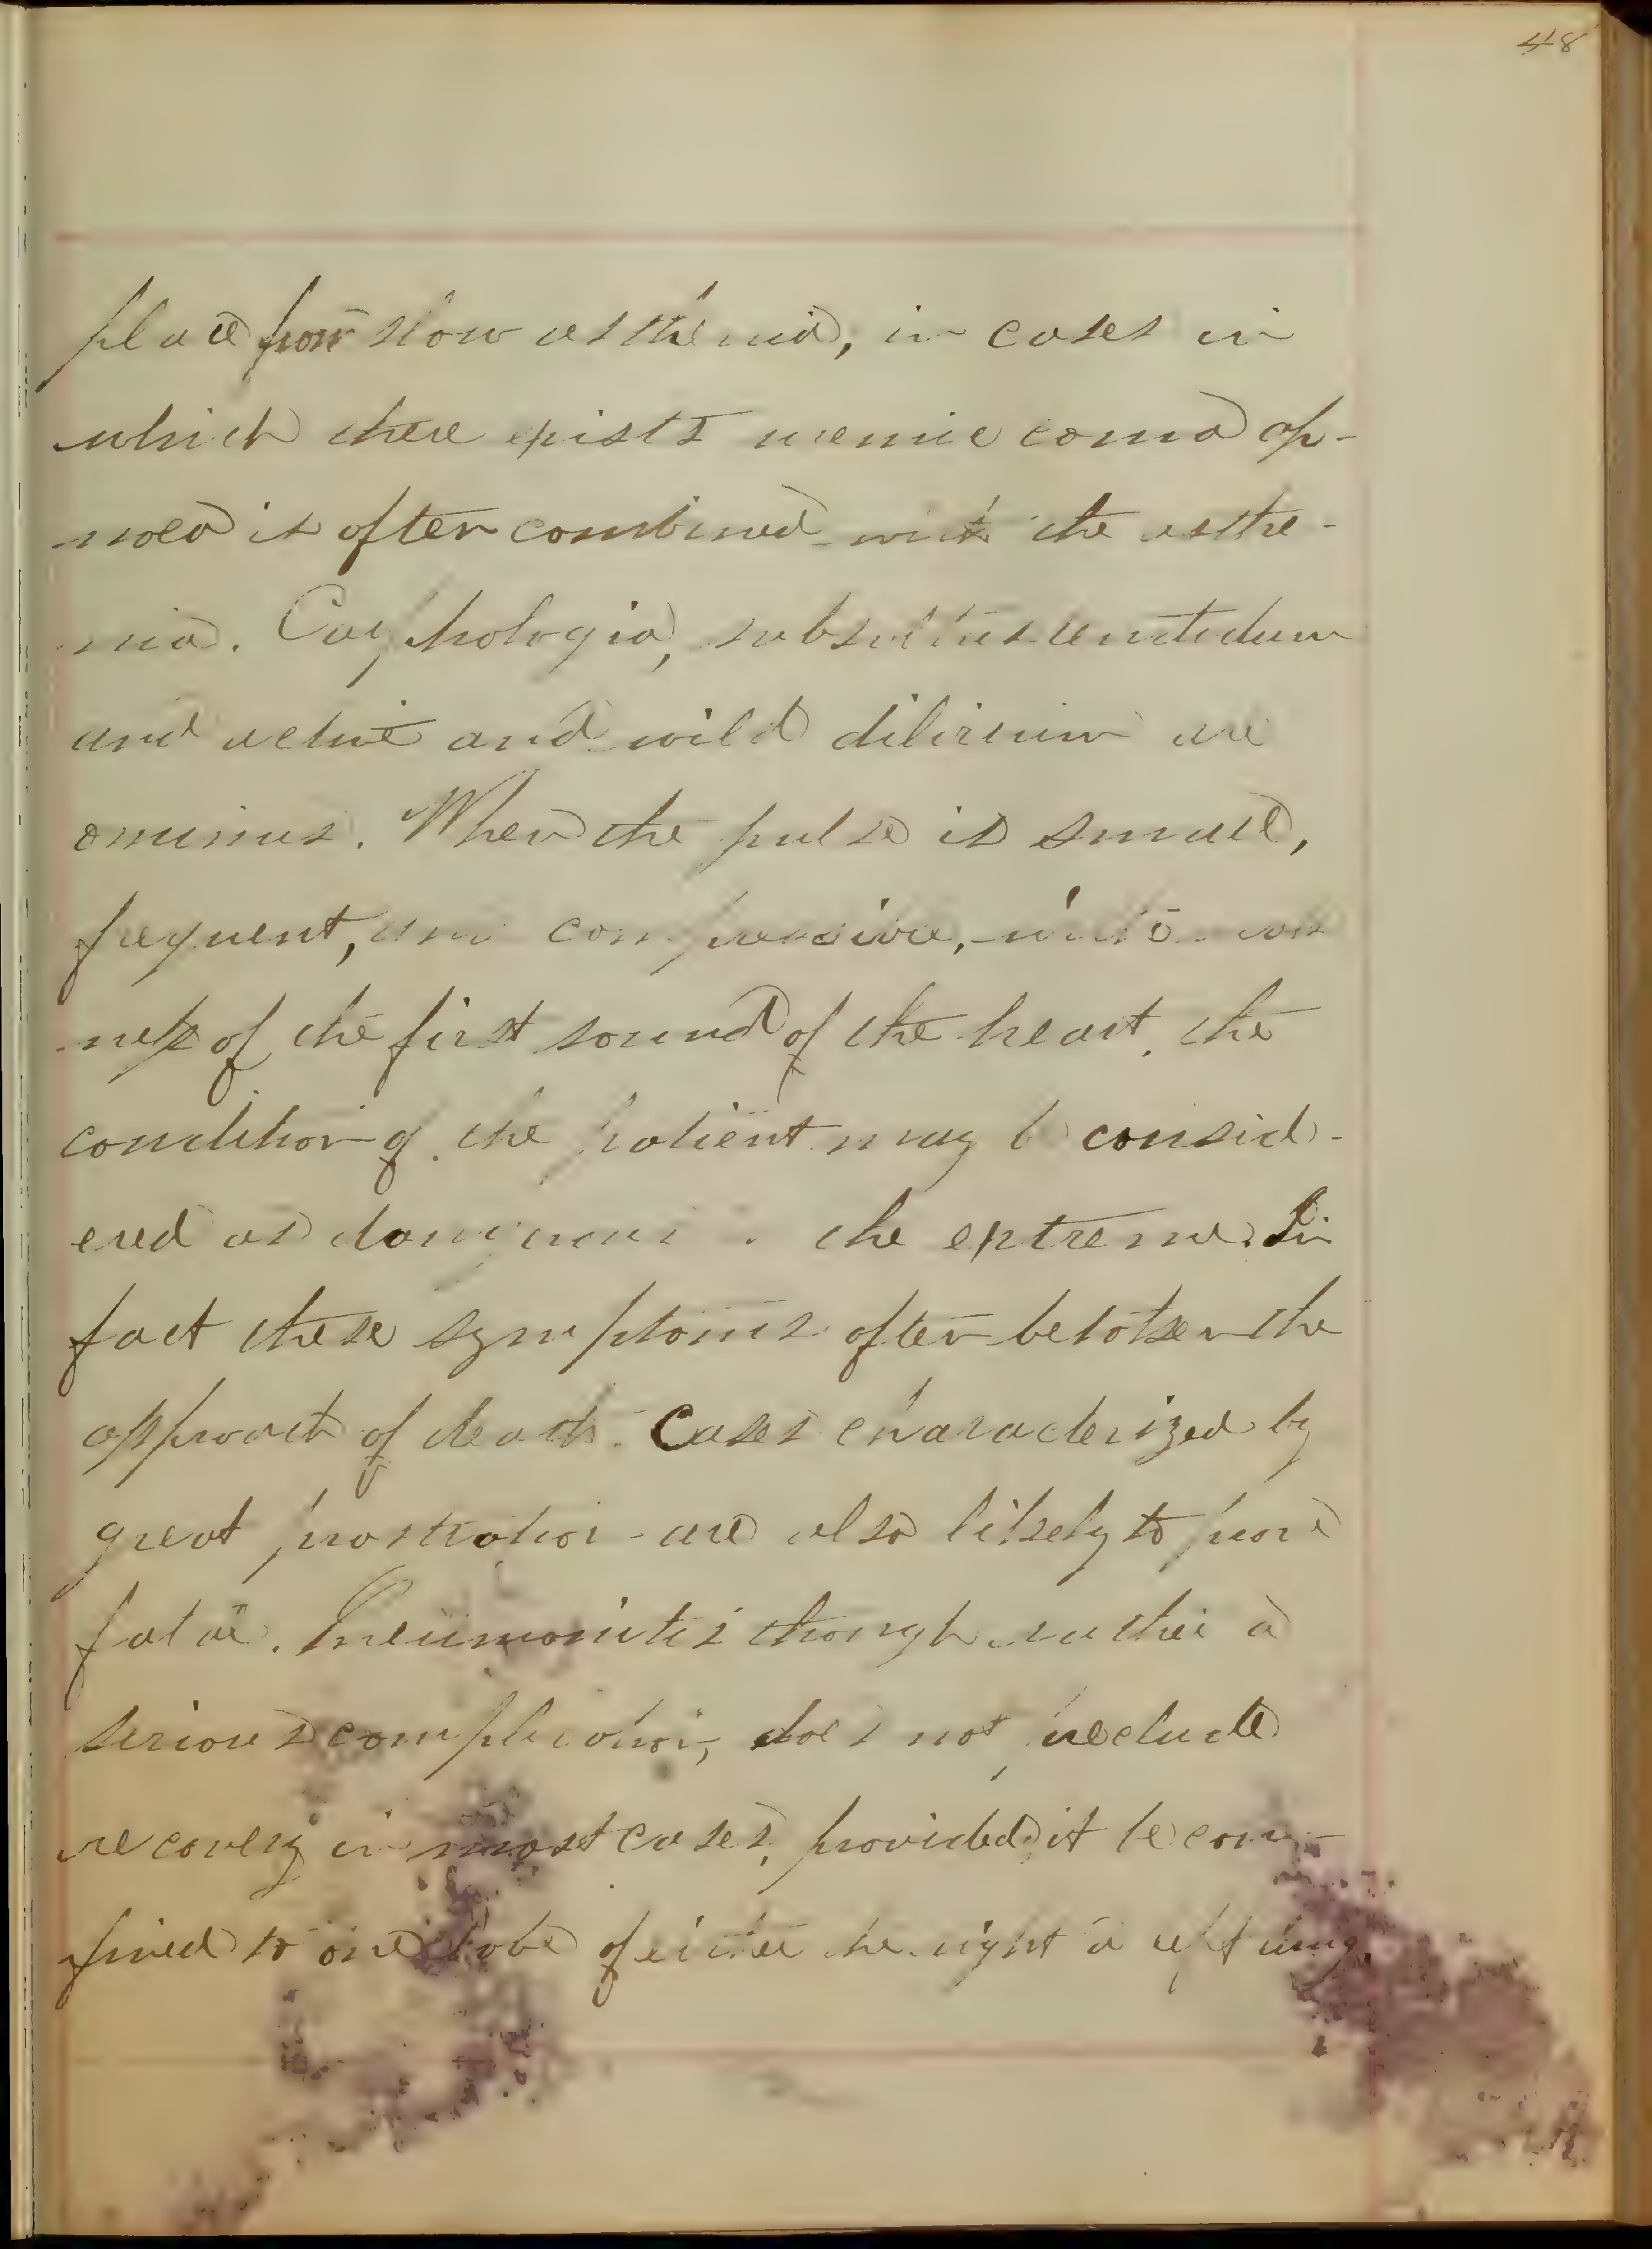 48
place from slow asthenia, in cases in
which there exists uremic coma ap-
noea is often combined with the asthe-
nia. Carphologia, subsultus tendidum
and active and wild dilirium are
ominus. When the pulse is small,
frequent, and compressive, with weak
ness of the first sound of the heart, the
condition of the patient may be consid-
ered as dangerous in the extreme. In
fact these symptoms often betoken the
approach of death. Cases characterized by
great prostration are also likely to prove
fatal. Pneumonitis though rather a
serious complication, does not preclude
recovery in most cases, provided it be con-
fined to one lobe of either the right or left lung.